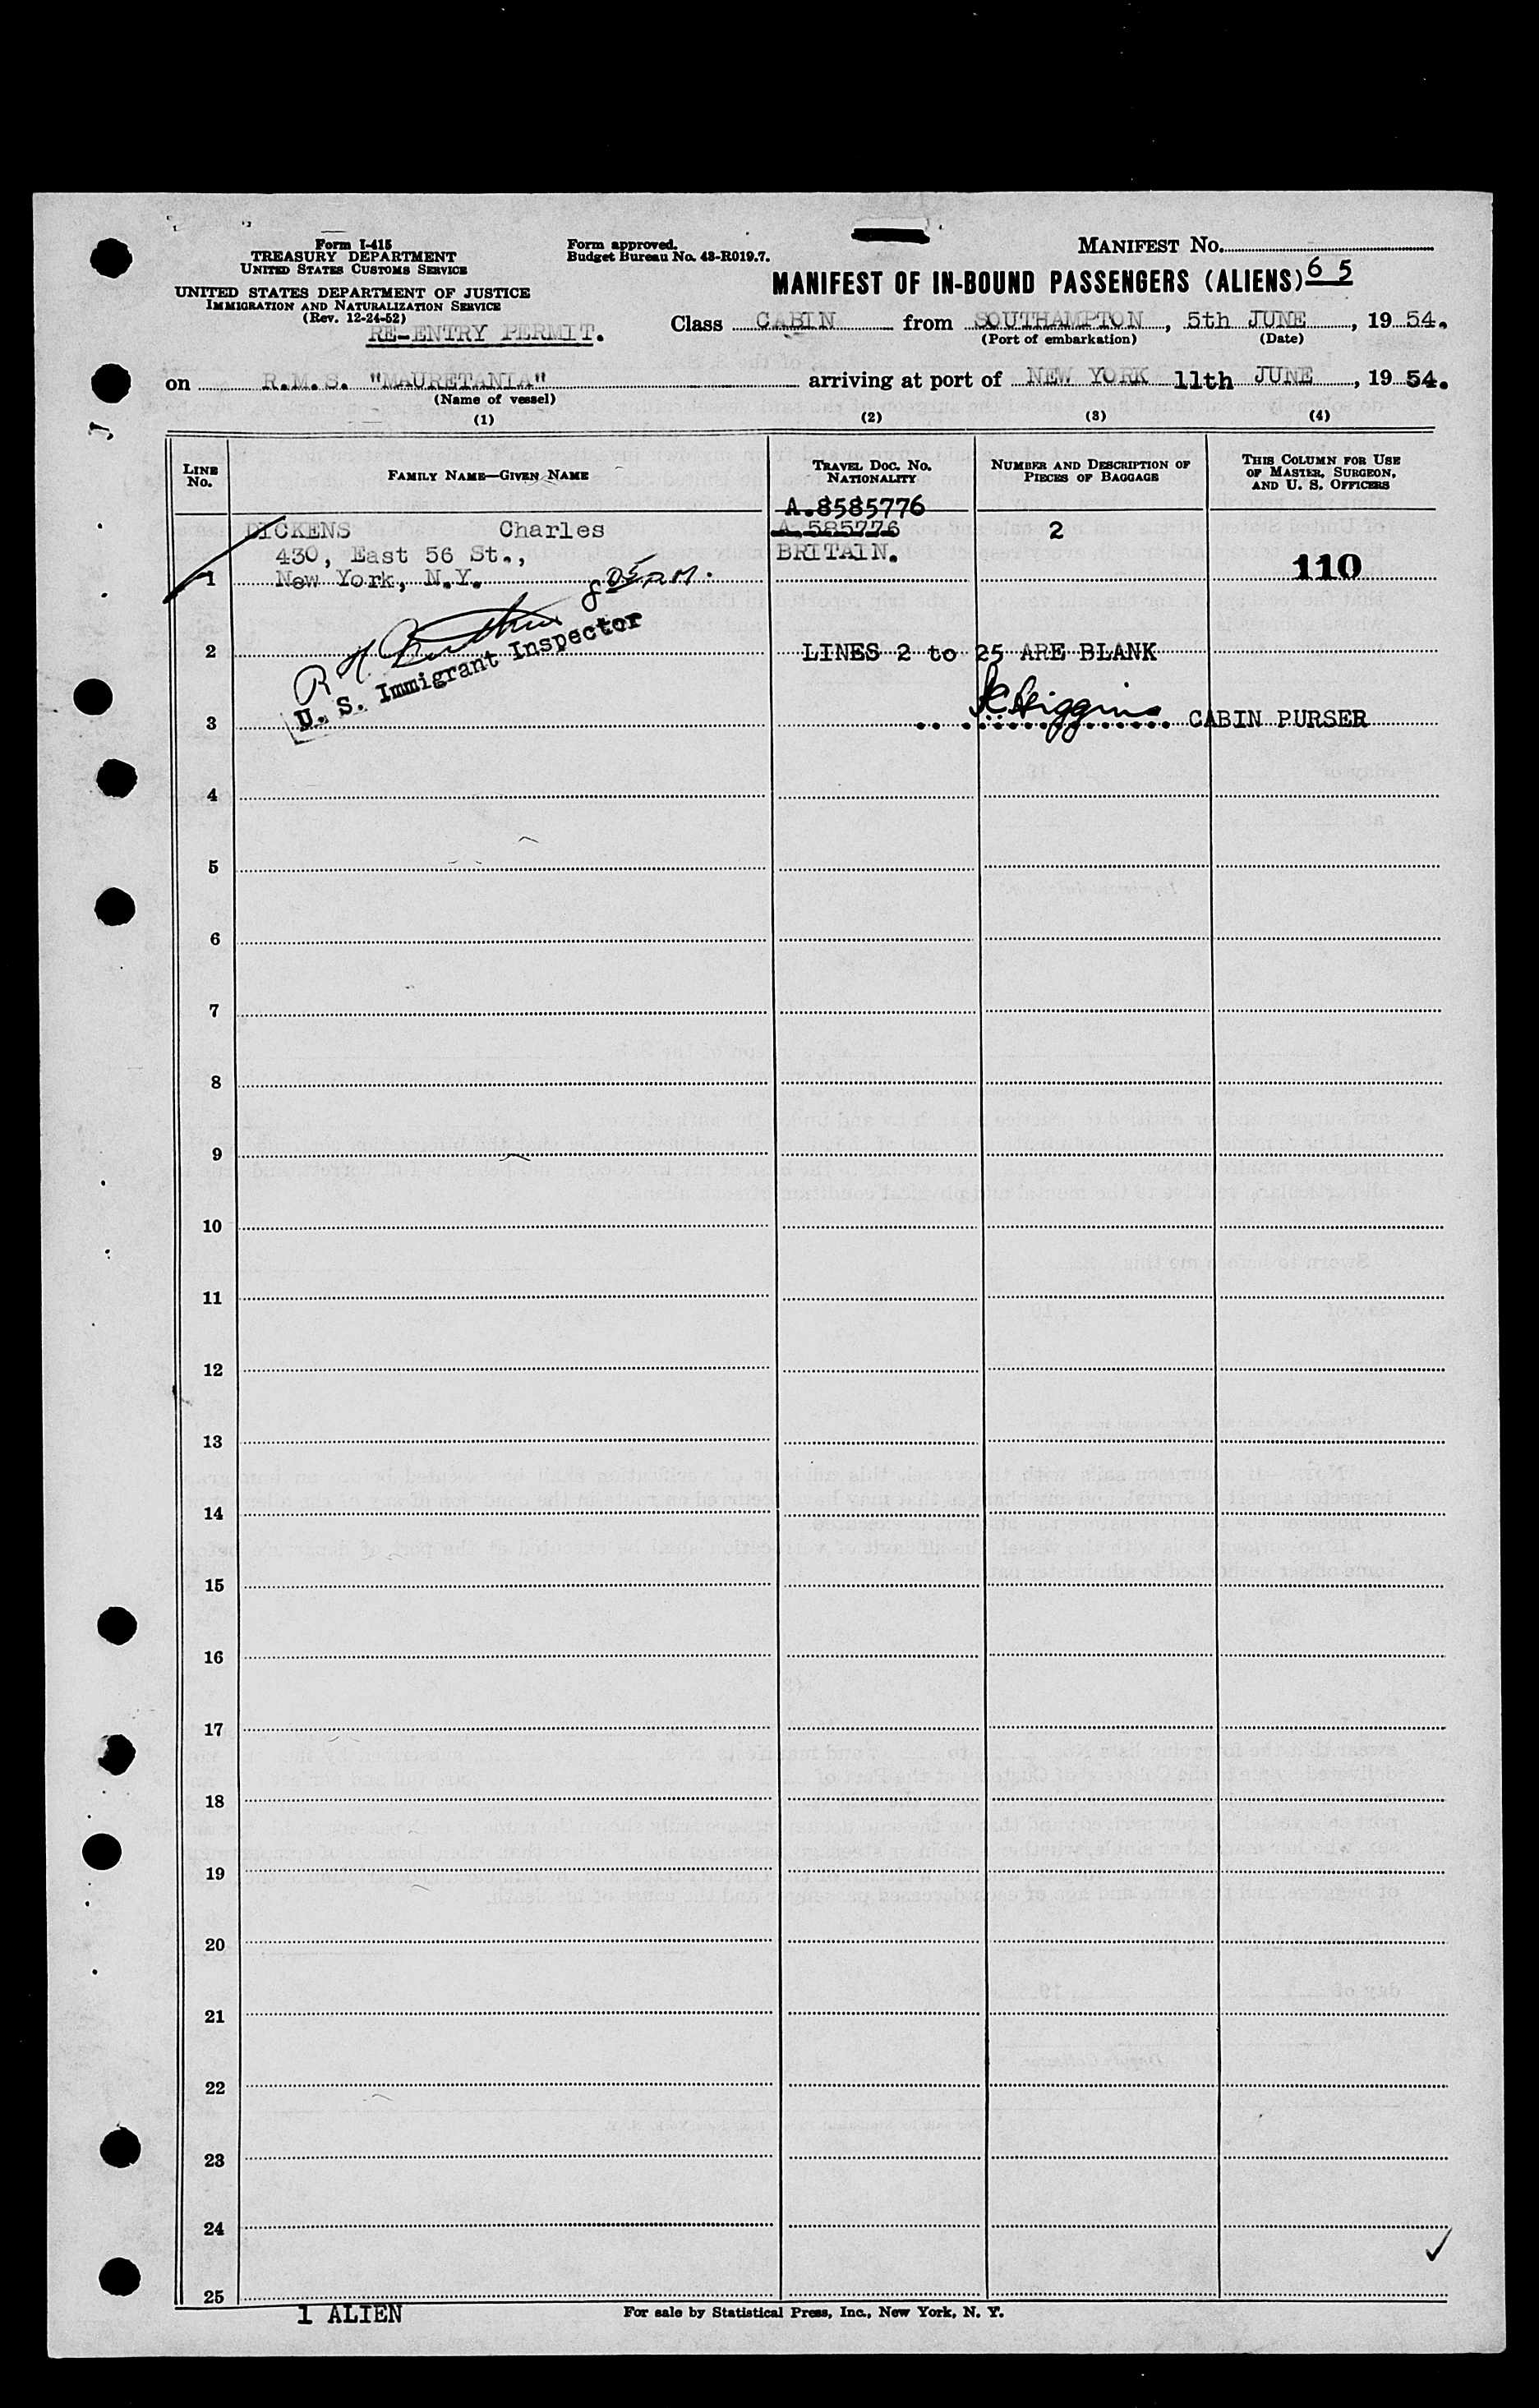 Form I-415
TREASURY DEPARTMENT
UNITED STATES CUSTOMS SERVICE
UNITED STATES DEPARTMENT OF JUSTICE
IMMIGRATION AND NATURALIZATION SERVICE
(Rev. 12-24-52)
RE-ENTRY PERMIT.
Form approved.
Budget Bureau No. 43-R019.7.
MANIFEST NO.
MANIFEST OF IN-BOUND PASSENGERS (ALIENS) 65
Class CABIN from SOUTHAMPTON, 5th JUNE, 1954.
(Port of embarkation) (Date)
on R.M.S. "MAURETANIA" arriving at port of NEW YORK 11th JUNE, 1954.
(Name of vessel)
(1) (2) (3) (4)
LINE NO.
FAMILY NAME—GIVEN NAME
TRAVEL DOC. NO.
NATIONALITY
NUMBER AND DESCRIPTION OF
PIECES OF BAGGAGE
THIS COLUMN FOR USE
OF MASTER, SURGEON,
AND U. S. OFFICERS
A.8585776
DICKENS Charles A.585776 2
430, East 56 St., BRITAIN.
1 New York, N.Y. 805 P.M. 110
R H
U. S. Immigrant Inspector
2 LINES 2 to 25 ARE BLANK
Higgins
3 CABIN PURSER
4
5
6
7
8
9
10
11
12
13
14
15
16
17
18
19
20
21
22
23
24
25
1 ALIEN
For sale by Statistical Press, Inc., New York, N. Y.